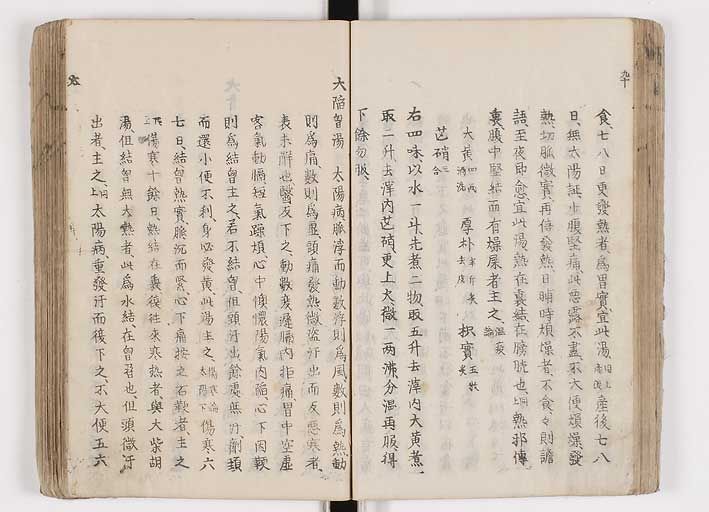 食、七八日更發熱者、爲胃實、宜此湯、同上 産後七八
日、無太陽証、少腹堅痛、此惡露不盡、不大便、煩燥發
熱、切脈微實、再倍發熱、日晡時煩燥者、不食、食則譫
語、至夜即愈、宜此湯、熱在裏、結在膀胱也、同上 熱邪傳
裏、腹中堅結而有燥屎者、主之、温疫論
大黄四兩酒洗 厚朴半斤炙去皮 枳實五枚炙
芒硝三合
右四味、以水一斗、先煮二物、取五升、去滓、内大黄、煮
取二升、去滓、内芒硝、更上火微一兩沸、分温再服、得
下餘勿服、
大陷胷湯 太陽病、脈浮而動數、浮則爲風、數則爲熱、動
則爲痛、數則爲虛、頭痛發熱、微盗汗出、而反惡寒者、
表未解也、醫反下之、動數変遲、膈内拒痛、胃中空虛
客氣動膈、短氣躁煩、心中懊憹、陽氣内陷、心下因鞕
則爲結胷、主之、若不結胷、但頭汗出、餘處無汗、劑頚
而還、小便不利、身必發黄、此湯主之、傷寒論太陽下 傷寒六
七日、結胷熱實、脈沉而緊、心下痛、按之石鞕者、主之
同上 傷寒十餘日、熱結在裏、復往來寒熱者、與大柴胡
湯、但結胷無大熱者、此爲水結在胷脅也、但頭微汗
出者、主之、同上 太陽病、重發汗而復下之、不大便五六